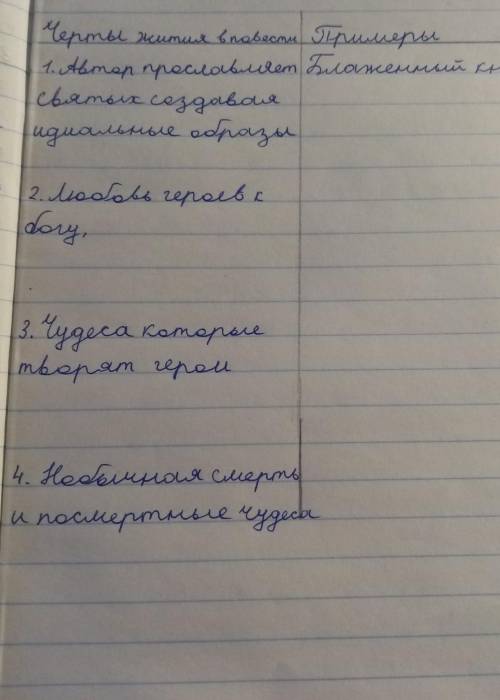 Черты жития в повести Примеры
1. Автор прославляет Блаженный кн
святых создавая
идиальные образы
2. Любовь героев к
богу.
3. Чудеса которые
творят герои
4. Необычная смерть
и посмертные чудеса